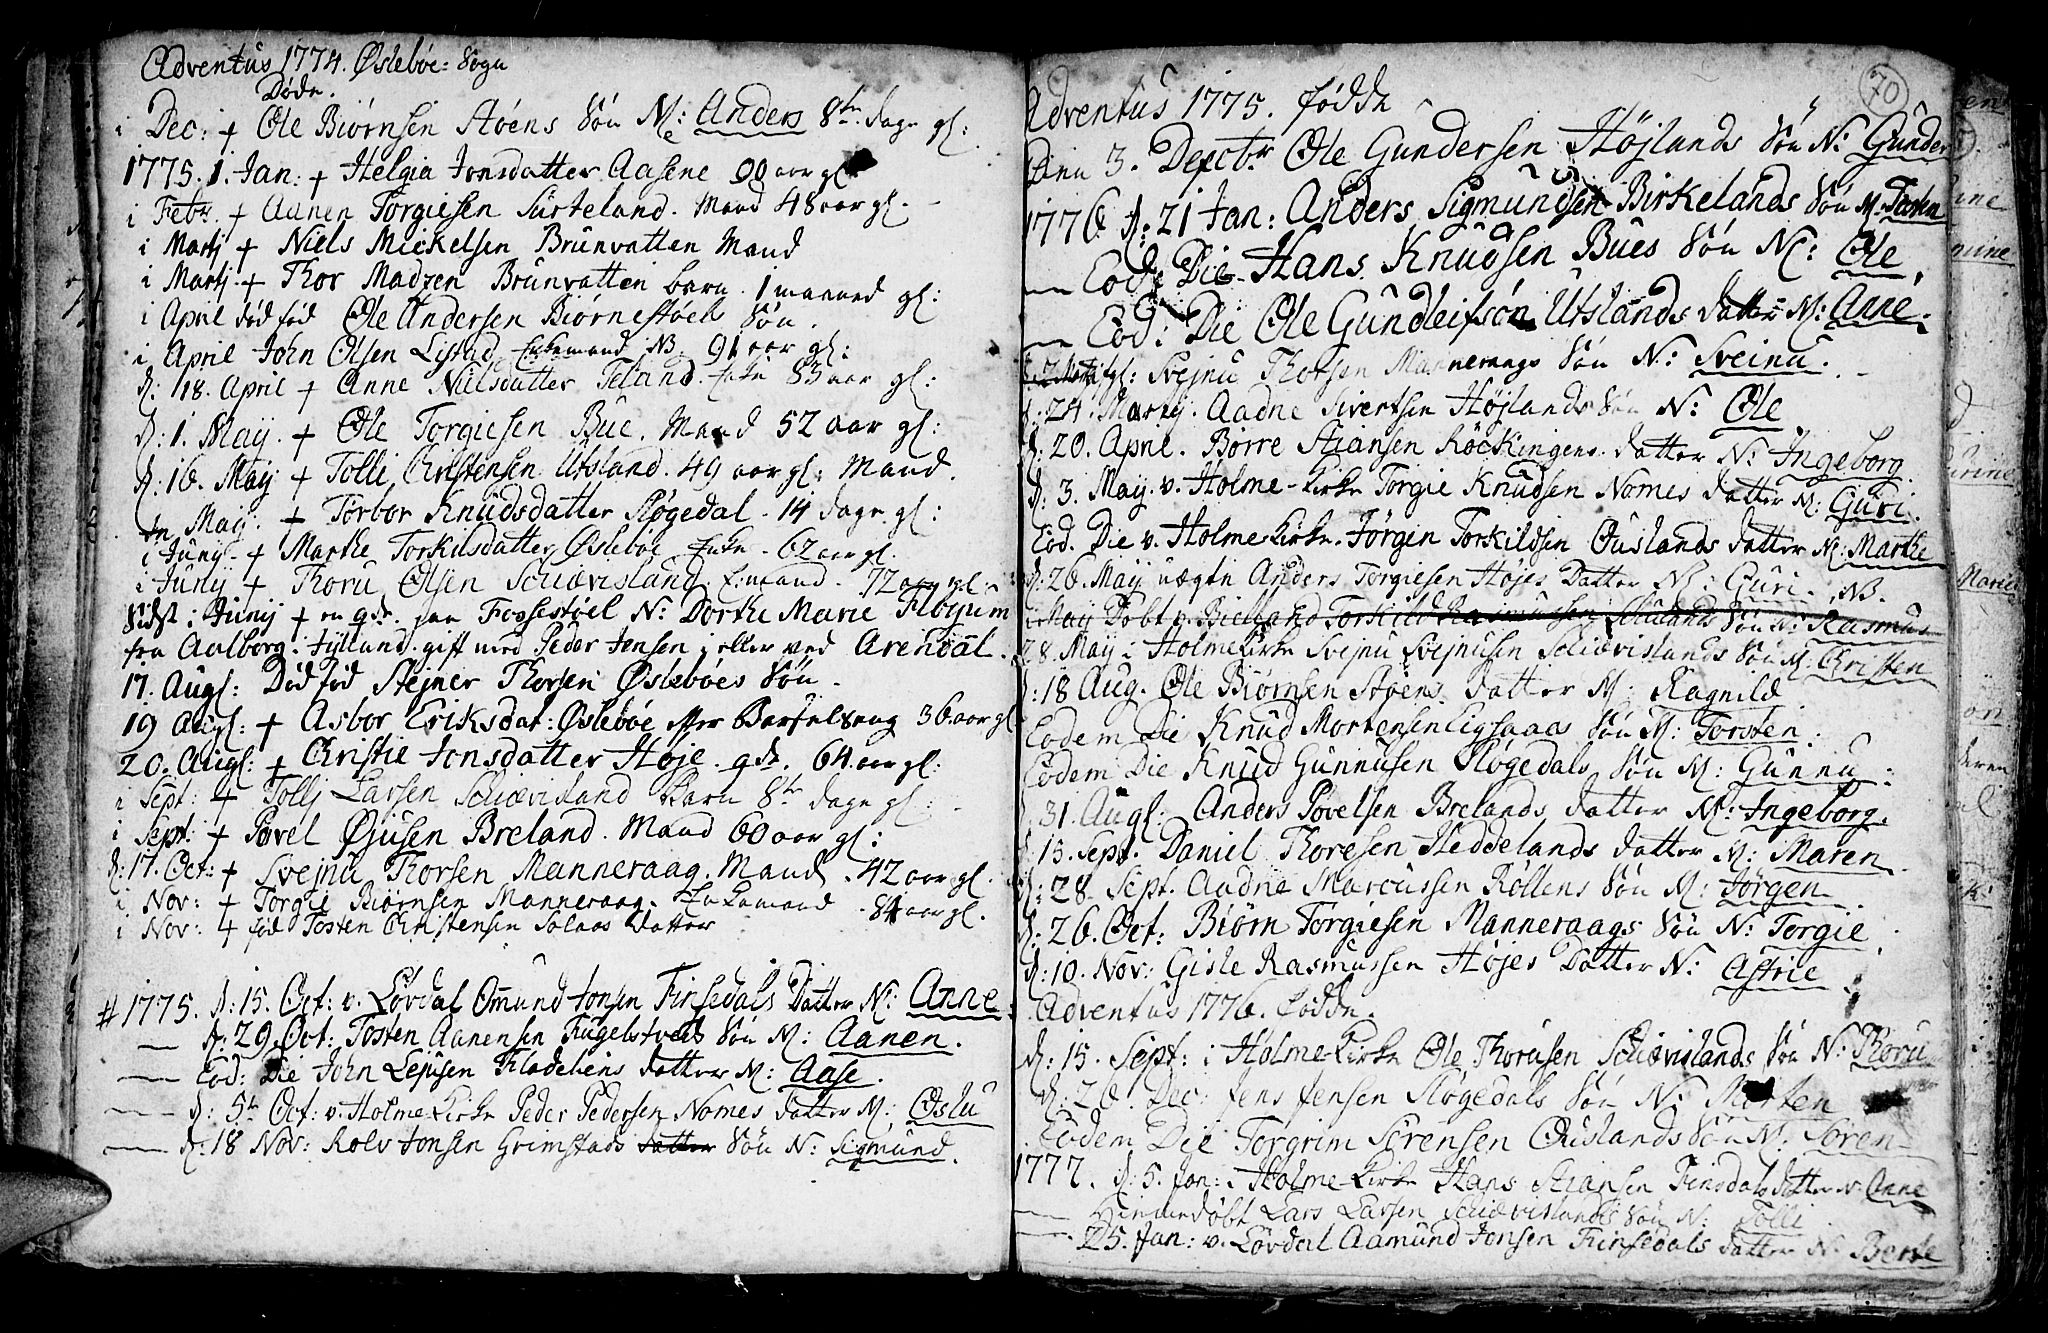 Adventus 1774. Øslebøe: Sogn
Døde.
i Dec: + Ole Biørnsen Støens Søn N: Anders 8te dage gl:
1775. 1. Jan: + Helgia Jonsdatter Aasene 90 aar gl
i Febr. + Aanen Torgiesen Surteland. Mand 48 aar gl.
i Martj + Niels Mickelsen Brunvatten Mand
i Martj + Thor Madzen Brunvatten barn. 1 maaned gl:
i April død fød Ole Andersen Biørnestøels Søn.
i April John Olsen Listad Enkemand NB. 91 aar gl:
d: 18. April + Anne Nielsdatter Teland. Enke 83 aar gl:
d: 1. Maij. + Ole Torgiesen Bue. Mand 52 aar gl:
d: 16. Maij + Tolli Christensen Utsland. 49 aar gl: Mand.
Maij. + Torbor Knudsdatter Røgedal. 14 dage gl:
i Junij. + Marthe Torkilsdatter Øslebøe Enke. 62 aar gl.
i Junij + Thoru Olsen Schiævisland. E:mand. 72 aar gl.
Sidst i Junij + en qde. paa Fossestøel N: Dorthe Marie
fra Aalborg i Jylland. gift med Peder Jensen i eller ved Arendal.
17. Augl: Død fød Stejner Thorsen Øslebøes Søn.
19 Augl: + Asbor Eriksdat: Øslebøe efter Barselseng 36 aar gl
20. Augl: + Christie Jonsdatter Høje. qde. 64 aar gl:
i Sept: + Tollj Larsen Schiævisland Barn 8te dage gl:
i Sept: + Povel Øjusen Breland. Mand 60 aar gl:
d: 17. Oct: + Svejnu Thorsen Manneraag. Mand. 42 aar gl.
i Nov: + Torgie Biørnsen Manneraag. Enkemand. 84 aar gl.
i Nov: + fød Tosten Christensen Solaas Datter
# 1775. d: 15. Oct: v. Løvdal Omund Jonsen Finsedals Datter N: Anne.
d: 29. Oct: Tosten Aanensen Kugelstveds Søn N: Aanen.
Eod: Die John Lejusen Fladehiens datter N: Aase.
d: 5te Oct: v. Holme-Kirke Peder Pedersen Nomes datter N: Oslu
d: 18 Nov: Rolv Jonsen Grimstads datter Søn N: Sigmund.
70
Adventus 1775. fødde
Dnn 3. Decbr Ole Gundersen Højlands Søn N: Gunder
1776. d: 21 Jan: Anders Sigmundsen Birkelands Søn N:
Eod: Die Hans Knudsen Bues Søn N: Ole.
Eod: Die Ole Gundleifsøn Utslands datter N: Anne.
Svejnu Thorsen Manneraags Søn N: Sveinu.
d: 24. Martij. Aadne Sivertsen Højlands Søn N: Ole
d: 20. April. Børre Stiansen Røckingens datter N: Ingeborg.
d: 3. Maij. v. Holme-Kirke Torgie Knudsen Nomes datter N: Guri.
Eod. Die v. Holme Kirke. Jørgen Torkildsen Ouslands datter N: Marthe
d: 26. Maij uægte Anders Torgiesen Højes Datter N: Guri. NB.
i Maij Døbt v. Bielland Torkild Rasmussen Søn N: Rasmus
28. Maij i Holme Kirke Svejnu Svejnusen Schiævislands Søn N: Christen
d: 18 Aug. Ole Biørnsen Støens datter N: Ragnild
Eodem Die Knud Mortensen Eigsaaas Søn N: Torsten.
Eodem Die Knud Gunnusen Røgedals Søn N: Gunnu:
d: 31. Augl: Anders Povelsen Brelands datter N: Ingeborg.
d: 15. Sept. Daniel Thoresen Heddelands datter N: Maren
d: 28 Sept. Aadne Marcussen Rollens Søn N: Jørgen
d: 26. Oct: Biørn Torgiesen Manneraags Søn N: Torgie
d: 10. Nov: Gisle Rasmussen Højes Datter N: Astrie
Adventus 1776. Fødde.
d: 15. Sept: i Holme-Kirke Ole Thorusen Schiævislands Søn N: Thoru
d: 26. Dec: Jens Jensen Røgedals Søn N: Morten
Eodem Die Torgrim Sørensen Ouslands Søn N: Søren
1777. d: 5. Jan: i Holme-Kirke Hans Stiansen Finsdals datter N: Anne
Hiemedøbt Lars Larsen Schiævislands Søn N: Tolli
25. Jan: v. Løvdal Aamund Jonsen Finsedals datter N: Berte